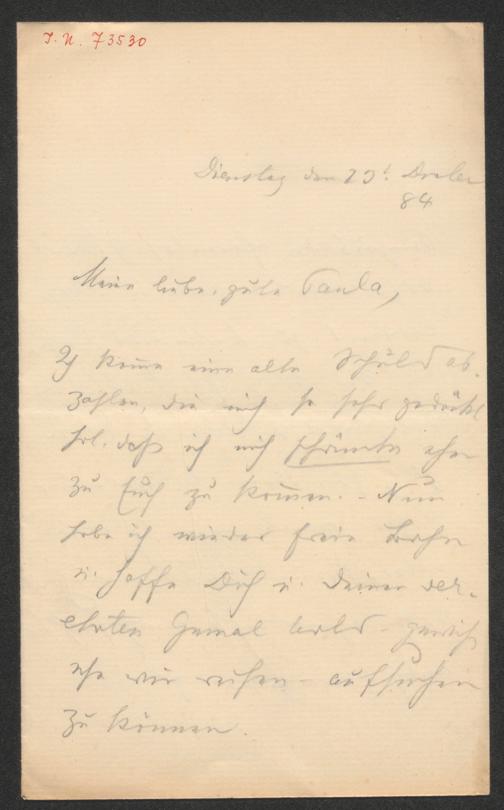 I.N. 73530
Dienstag den 23t. Dezber
84
Meine liebe, gute Paula,
Ich komme eine alte Schuld ab-
zahlen, die mich so sehr gedrückt
hat, daß ich mich schämte eher
zu Euch zu kommen. - Nun
habe ich wieder freie Bahn
u. hoffe Dich u. Deinen ver-
ehrten Gemal bald - gewiß
ehe wir reisen - aufsuchen
zu können.